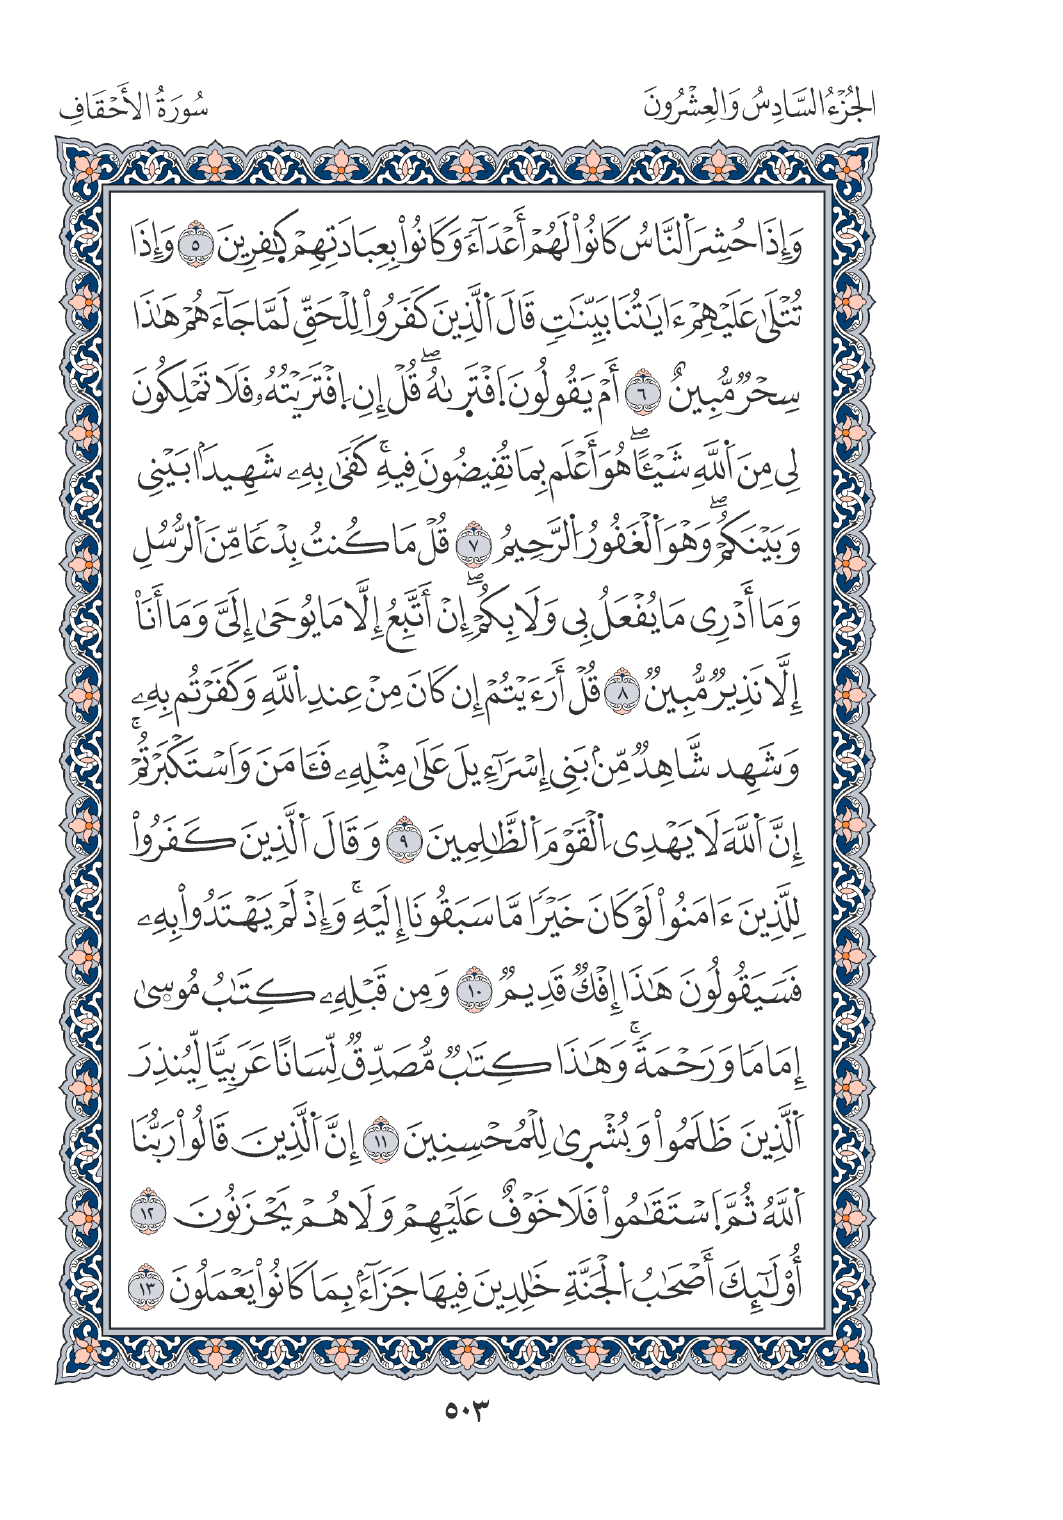 الجُزْءُ السَّادِسُ وَالعِشْرُونَ
سُورَةُ الأَحْقَافِ
وَإِذَا حُشِرَ اَ۬لنَّاسُ كَانُواْ لَهُمْ أَعْدَآءٗ وَكَانُواْ بِعِبَادَتِهِمْ كٰ۪فِرِينَ ٥ وَإِذَا
تُتْلَىٰ عَلَيْهِمْ ءَايَٰتُنَا بَيِّنَٰتٖ قَالَ اَ۬لَّذِينَ كَفَرُواْ لِلْحَقِّ لَمَّا جَآءَهُمْ هَٰذَا
سِحْرٞ مُّبِينٌ ٦ أَمْ يَقُولُونَ اَ۪فْتَر۪ىٰهُۖ قُلْ إِنِ اِ۪فْتَرَيْتُهُۥ فَلَا تَمْلِكُونَ
لِي مِنَ اَ۬للَّهِ شَيْـًٔاۖ هُوَ أَعْلَم بِمَا تُفِيضُونَ فِيهِۚ كَفَىٰ بِهِۦ شَهِيدَۢا بَيْنِي
وَبَيْنَكُمْۖ وَهْوَ اَ۬لْغَفُورُ اُ۬لرَّحِيمُ ٧ قُلْ مَا كُنتُ بِدْعٗا مِّنَ اَ۬لرُّسُلِ
وَمَا أَدْرِي مَا يُفْعَلُ بِي وَلَا بِكُمْۖ إِنْ أَتَّبِعُ إِلَّا مَا يُوحَىٰ إِلَيَّ وَمَا أَنَا۠
إِلَّا نَذِيرٞ مُّبِينٞ ٨ قُلْ أَرَءَيْتُمْ إِن كَانَ مِنْ عِندِ اِ۬للَّهِ وَكَفَرْتُم بِهِۦ
وَشَهِد شَّاهِدٞ مِّنۢ بَنِي إِسْرَآءِيلَ عَلَىٰ مِثْلِهِۦ فَـَٔامَنَ وَاَسْتَكْبَرْتُمْۚ
إِنَّ اَ۬للَّهَ لَا يَهْدِي اِ۬لْقَوْمَ اَ۬لظَّٰلِمِينَ ٩ وَقَالَ اَ۬لَّذِينَ كَفَرُواْ
لِلَّذِينَ ءَامَنُواْ لَوْ كَانَ خَيْرٗا مَّا سَبَقُونَا إِلَيْهِۚ وَإِذْ لَمْ يَهْتَدُواْ بِهِۦ
فَسَيَقُولُونَ هَٰذَا إِفْكٞ قَدِيمٞ ١٠ وَمِن قَبْلِهِۦ كِتَٰبُ مُوس۪ىٰ
إِمَامٗا وَرَحْمَةٗۚ وَهَٰذَا كِتَٰبٞ مُّصَدِّقٞ لِّسَانًا عَرَبِيّٗا لِّيُنذِرَ
اَ۬لَّذِينَ ظَلَمُواْ وَبُشْر۪ىٰ لِلْمُحْسِنِينَ ١١ إِنَّ اَ۬لَّذِينَ قَالُواْ رَبُّنَا
اَ۬للَّهُ ثُمَّ اَ۪سْتَقَٰمُواْ فَلَا خَوْفٌ عَلَيْهِمْ وَلَا هُمْ يَحْزَنُونَ ١٢
أُوْلَٰٓئِكَ أَصْحَٰبُ اُ۬لْجَنَّةِ خَٰلِدِينَ فِيهَا جَزَآءَۢ بِمَا كَانُواْ يَعْمَلُونَ ١٣
٥٠٣